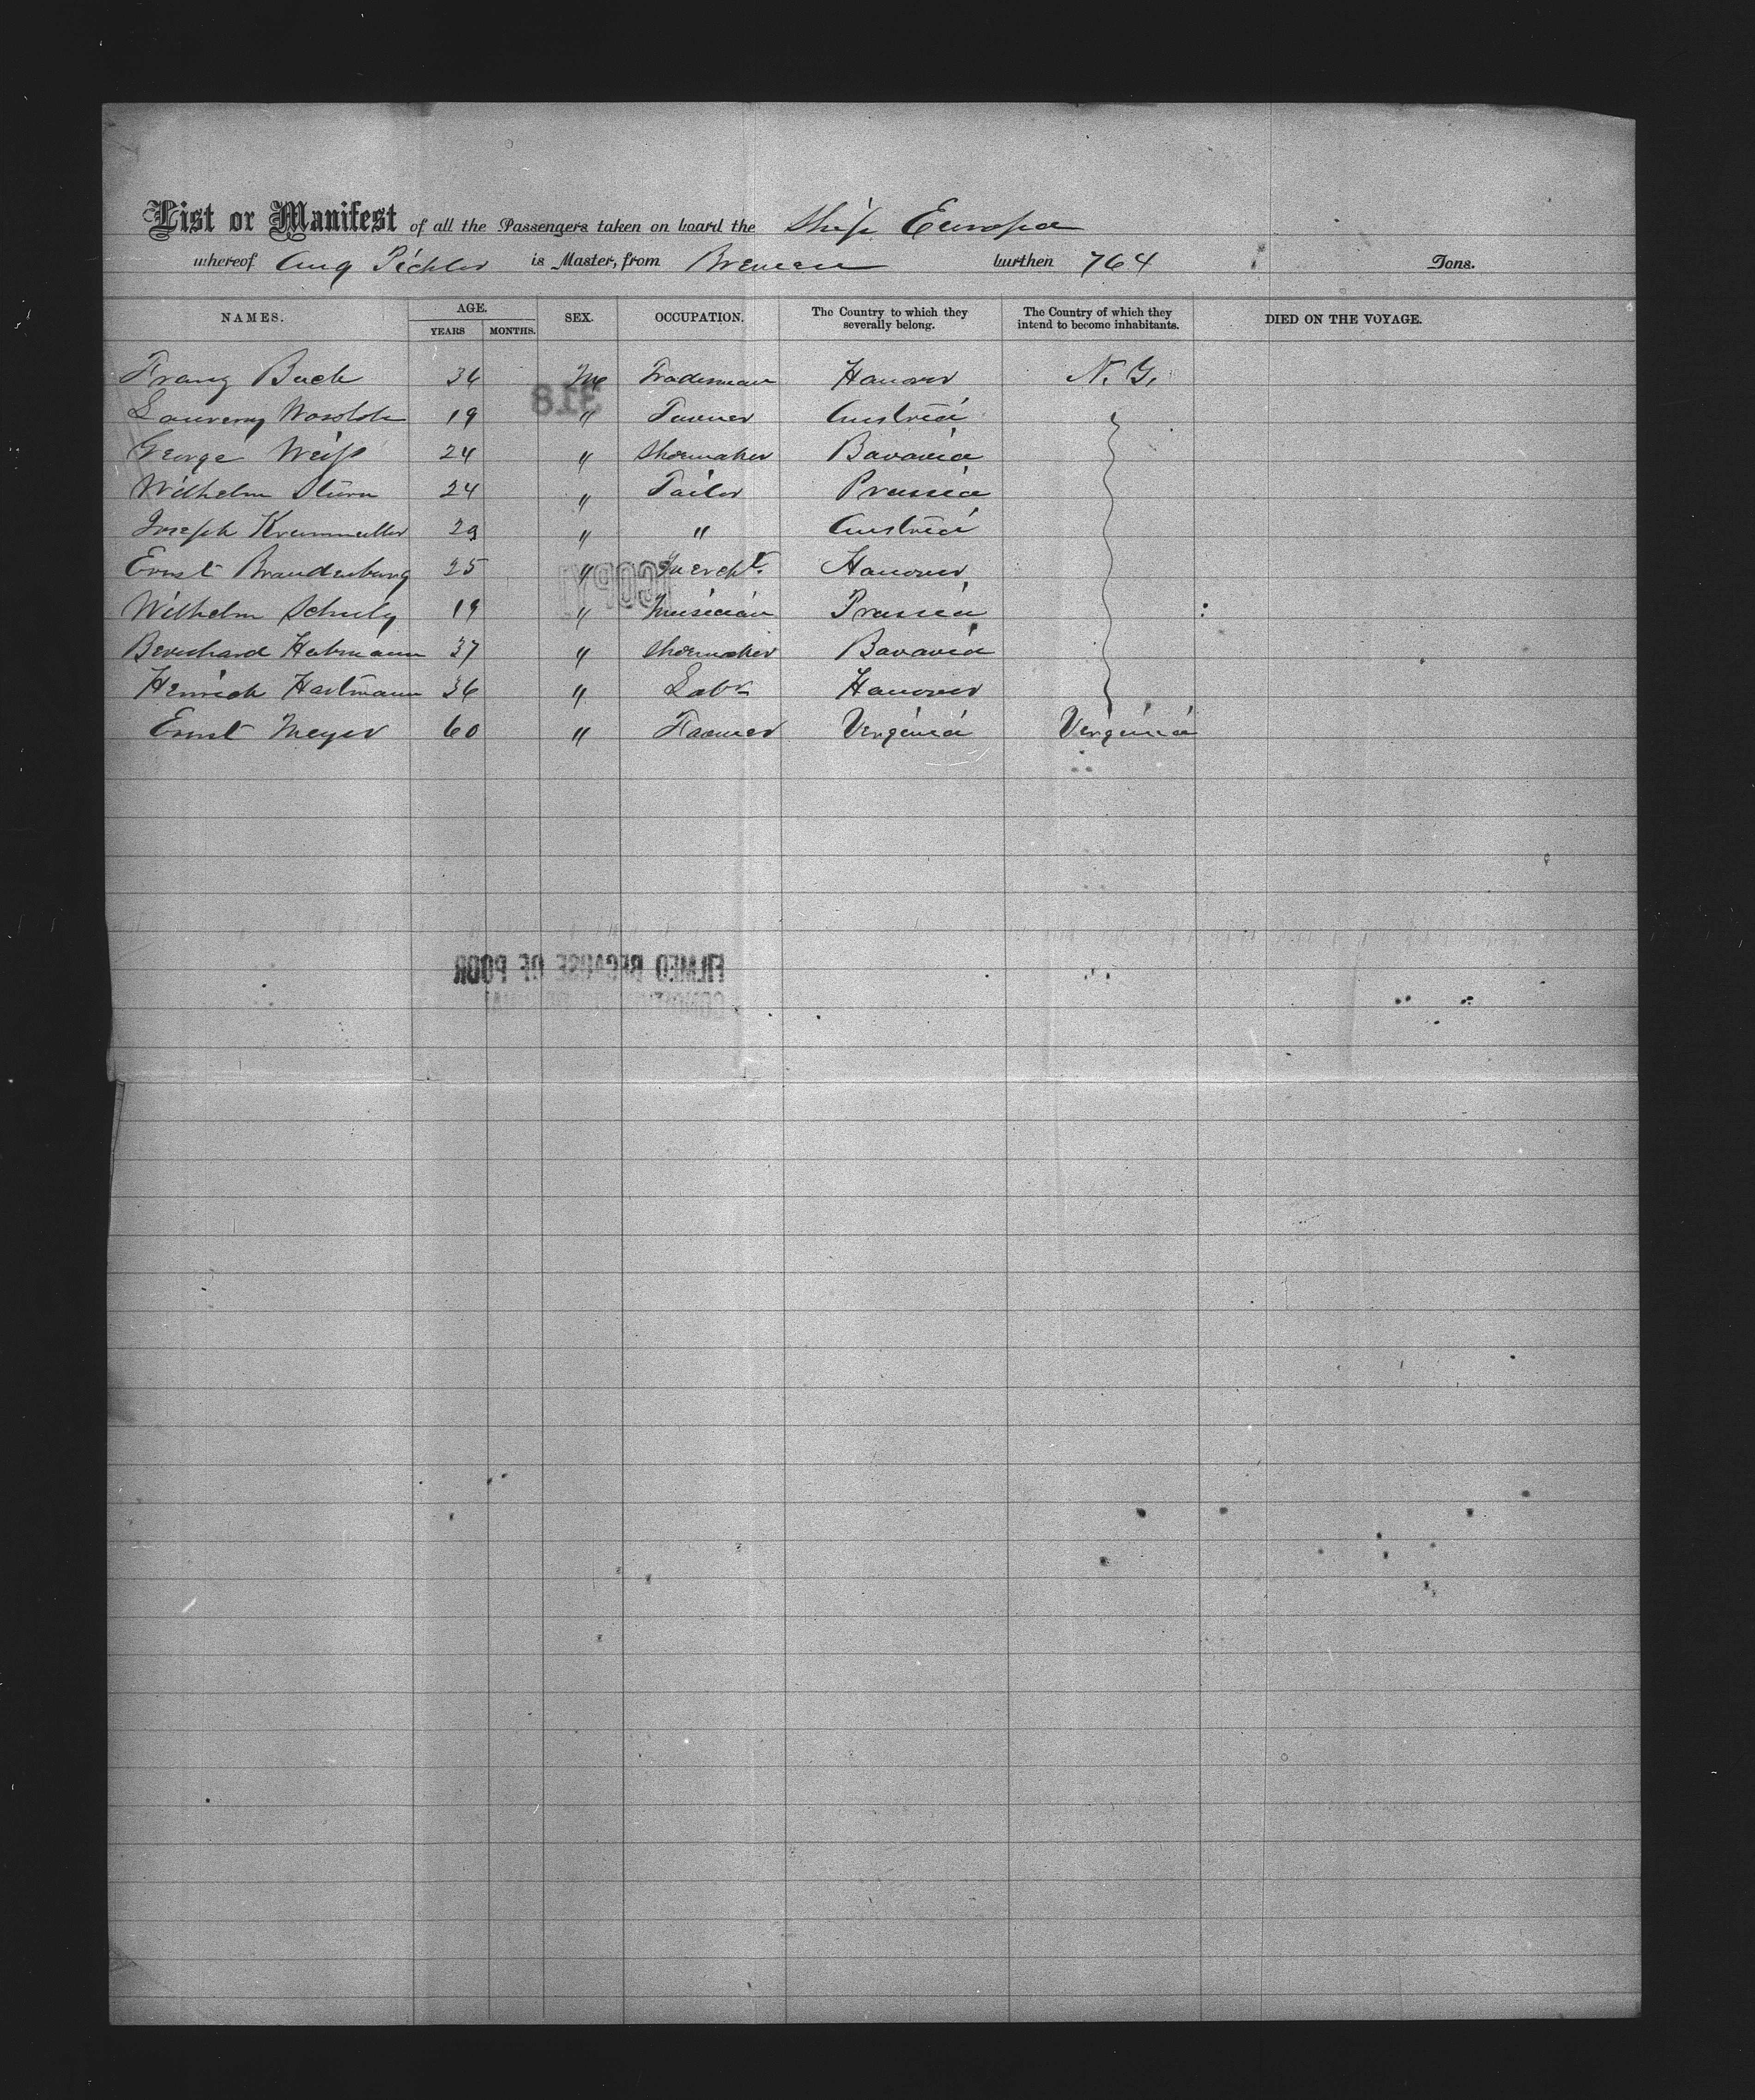 List or Manifest of all the Passengers taken on board the Ship Europa
whereof Aug Pichler is Master, from Bremen burthen 764 Tons.
NAMES. AGE. YEARS MONTHS. SEX. OCCUPATION. The Country to which they severally belong. The Country of which they intend to become inhabitants. DIED ON THE VOYAGE.
Franz 36 M Tradesman Hanover
318
19 " Austria
George Weiß 24 " Shoemaker Bavaria
Wilhelm Sturm 24 " Tailor Prussia
Joseph Krummuller 29 " " Austria
Ernst Brandenburg 25 " Mercht. Hanover
COPY
Wilhelm Schulz 19 " Musician Prussia
37 " Shoemaker Bavaria
Heinrich Hartmann 36 " Labr Hanover
Ernst Meyer 60 " Farmer Virginia Virginia
FILMED BECAUSE OF POOR